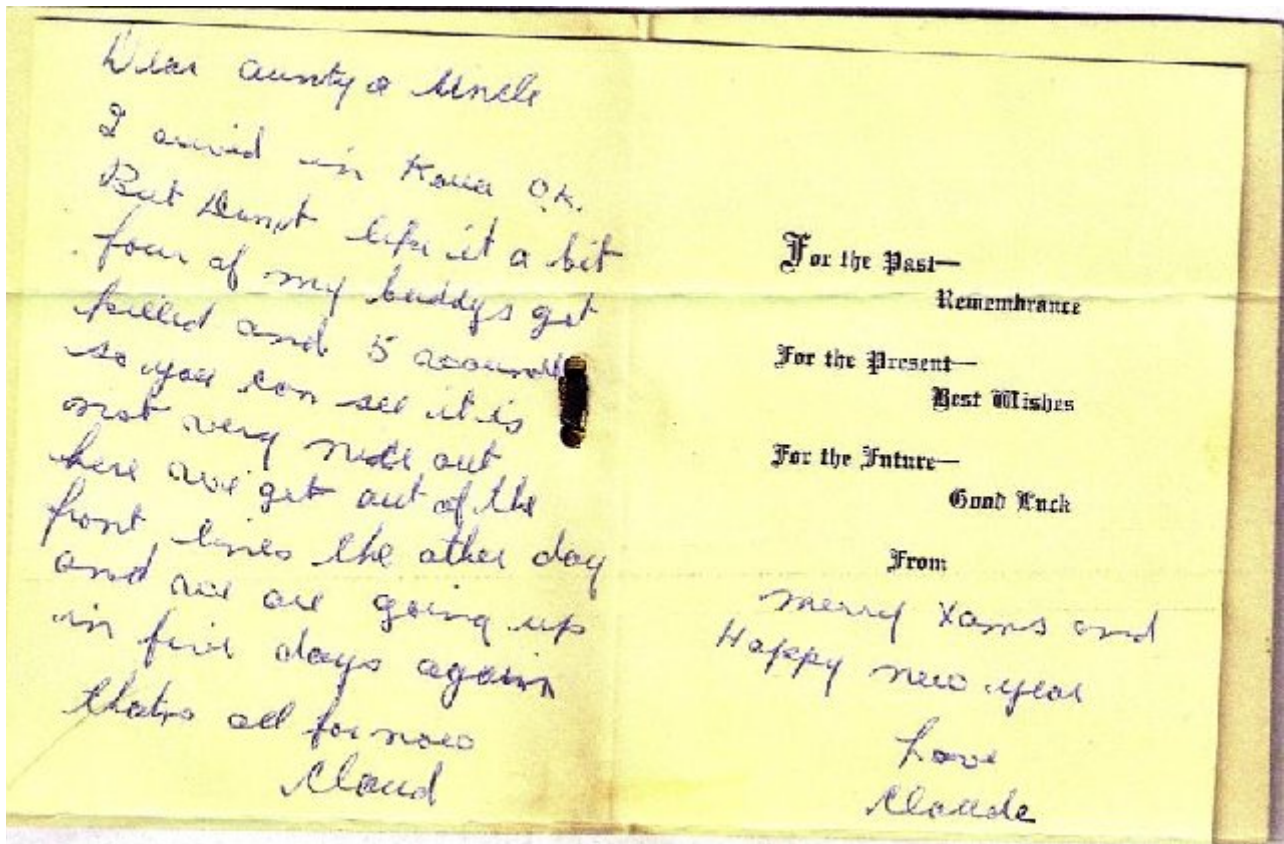 Dear aunty & Uncle
I arrivid in Korea O.K.
But Dunot like it a bit
four of my buddys get
killed and 5 wounded
so you can see it is
not very nice out
here we get out of the
front lines the other day
and we are going up
in five days again
thats all for now
Cloud
For the Past—
Remembrance
For the Present—
Best Wishes
For the Future—
Good Luck
From
merry Xams and
Happy new year
Love
Claude